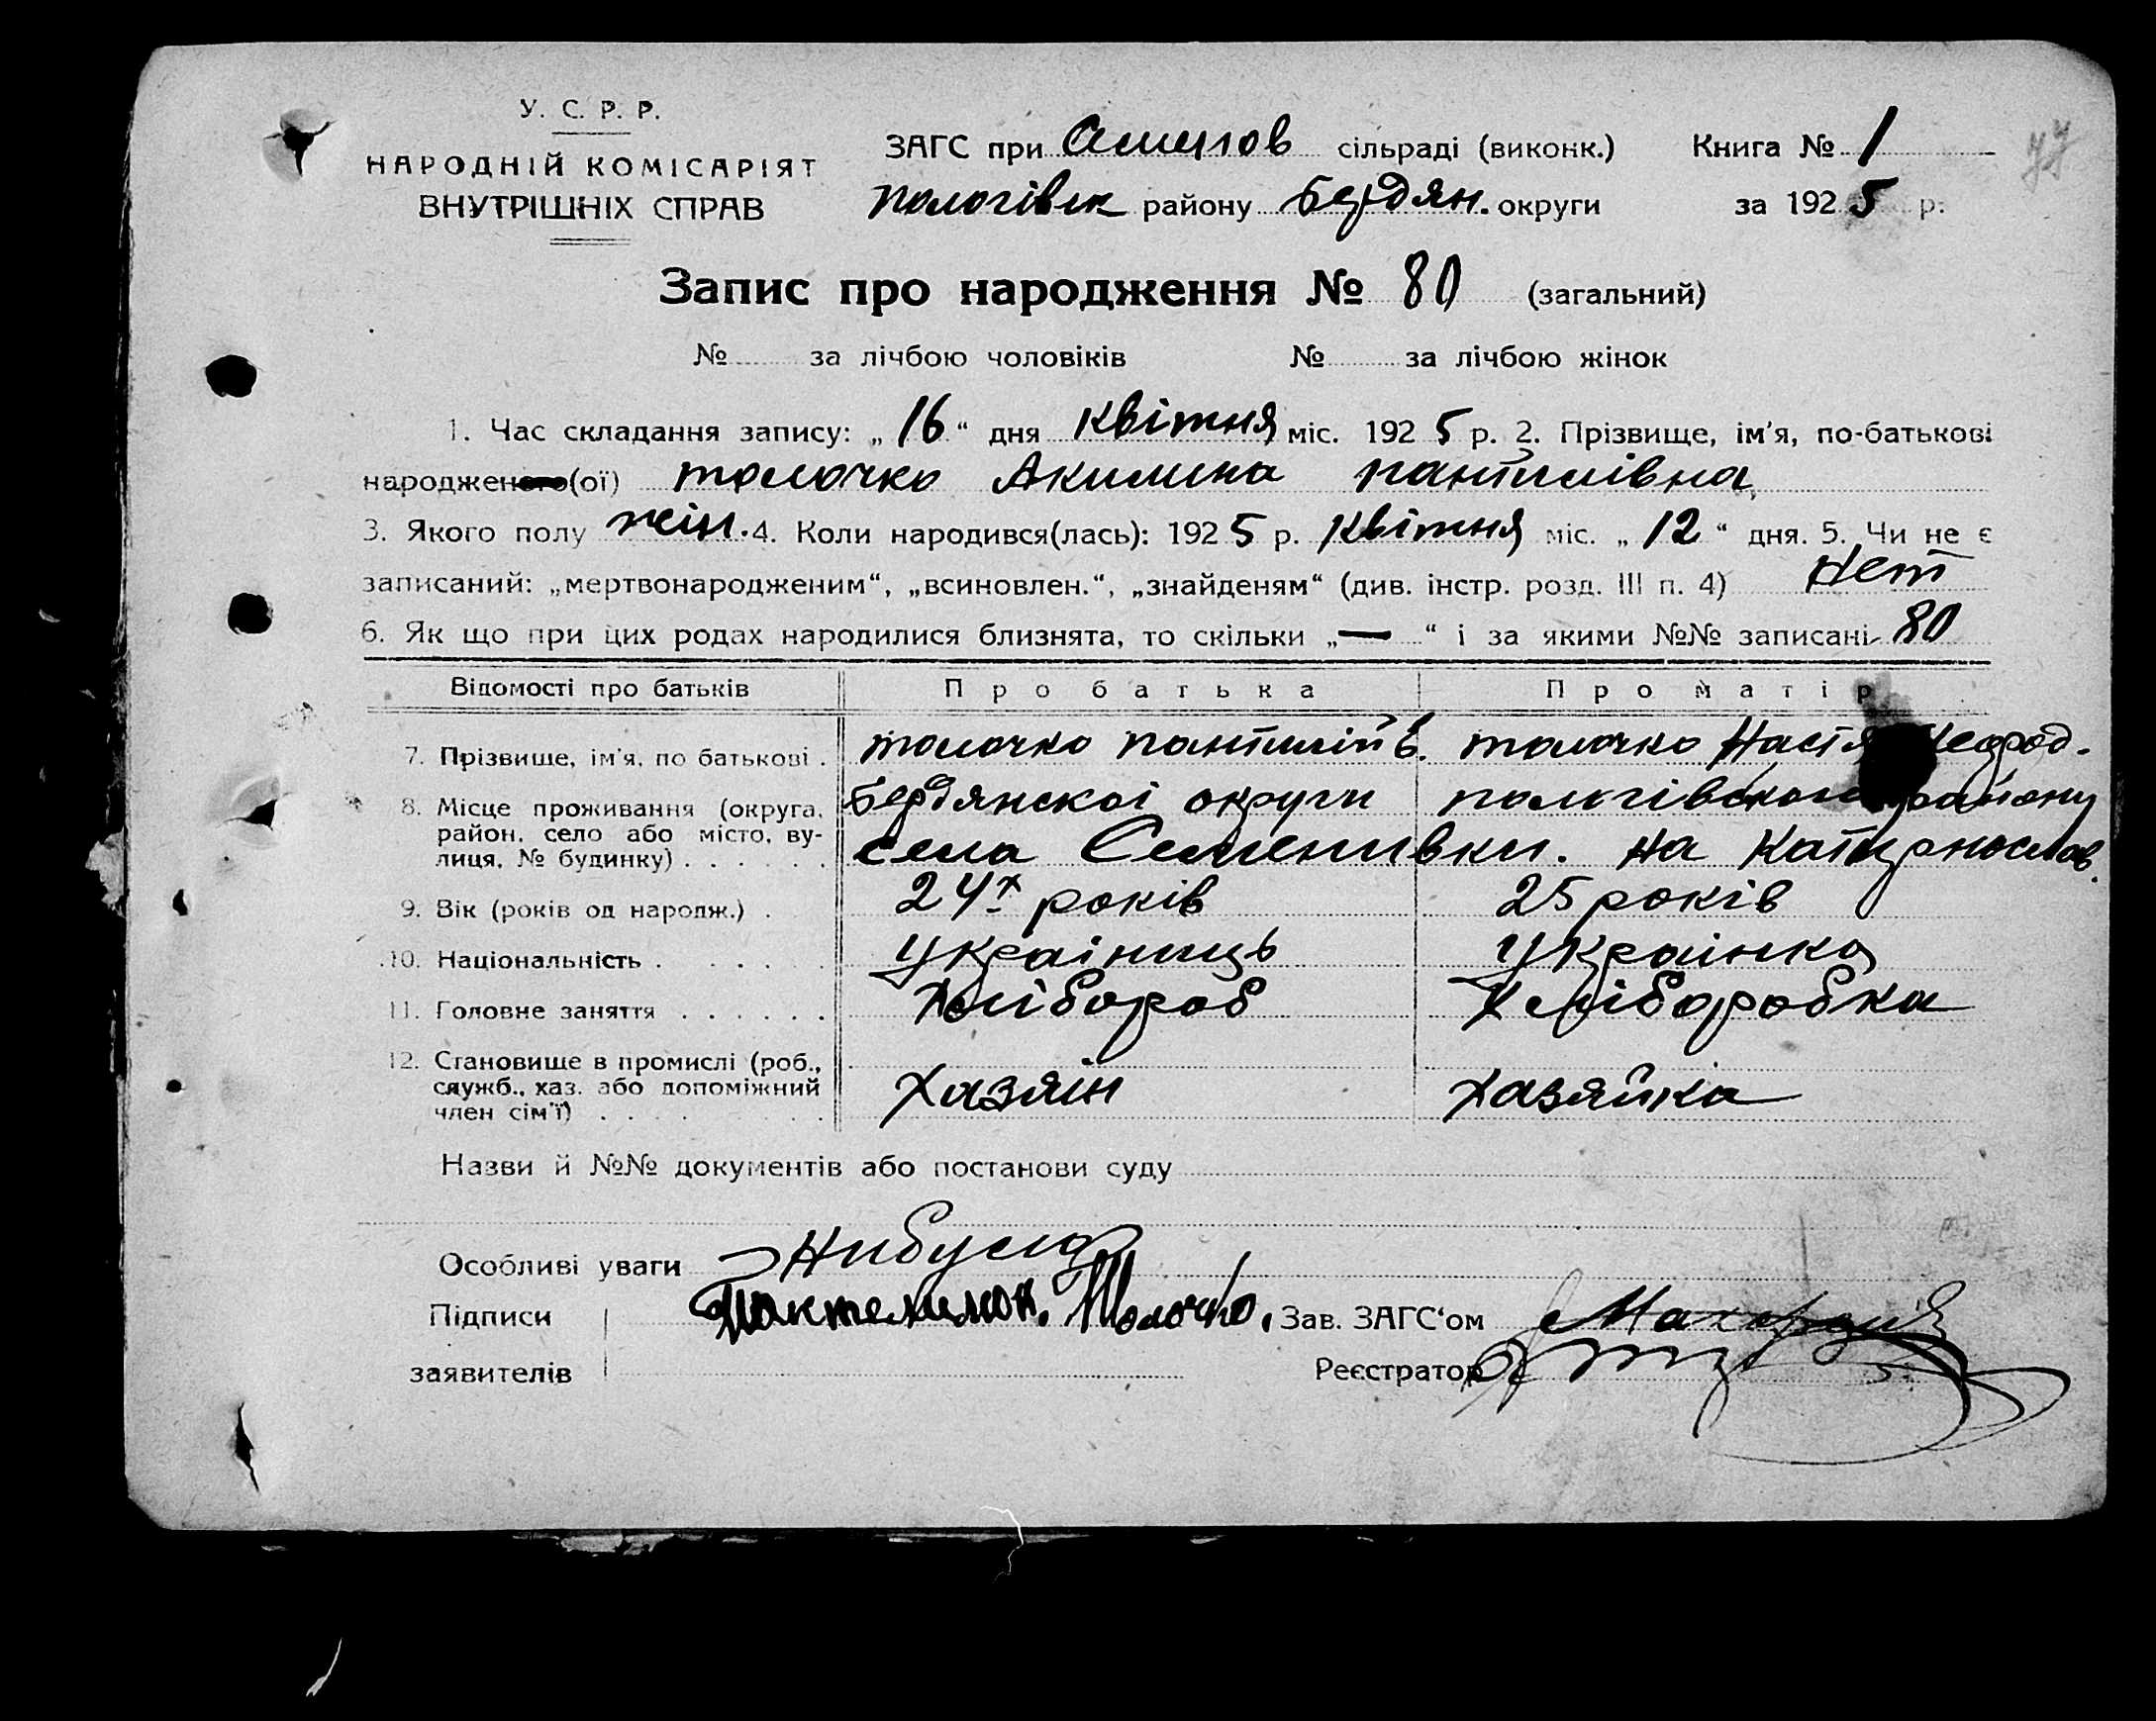 У. С. Р. Р.
НАРОДНІЙ КОМІСАРІЯТ
ВНУТРІШНІХ СПРАВ
ЗАГС при сільраді (виконк.) Книга № 1
пологівск району Бердян. округи за 1925 р.
Запис про народження № 80 (загальний)
№ за лічбою чоловіків № за лічбою жінок
1. Час складання запису: „16“ дня квітня міс. 1925 р. 2. Прізвище, ім'я, по-батькові
народженого(ої) толочко Акилина пантилівна
3. Якого полу жін. 4. Коли народився(лась): 1925 р. квітня міс. „12“ дня. 5. Чи не є
записаний: „мертвонародженим“, „всиновлен.“, „знайденям“ (див. інстр. розд. III п. 4) Нет
6. Як що при цих родах народилися близнята, то скільки „—“ і за якими №№ записані 80
Відомості про батьків Про батька Про матір
7. Прізвище, ім'я, по батькові . толочко толочко Настя
8. Місце проживання (округа, район, село або місто, вулиця, № будинку) . . . . . . Бердянскоі округи пологівского району
села Семенивки. на
9. Вік (років од народж.) . 24х років 25 років
10. Національність . . . . . Украінець Украінка
11. Головне заняття . . . . . . Хлібороб Хліборобка
12. Становище в промислі (роб., служб., хаз. або допоміжний член сім'ї) . . . . . Хазяін Хазяйка
Назви й №№ документів або постанови суду
Особливі уваги
Підписи Пантелимон. Толочко. Зав. ЗАГС'ом
заявителів Реєстратор